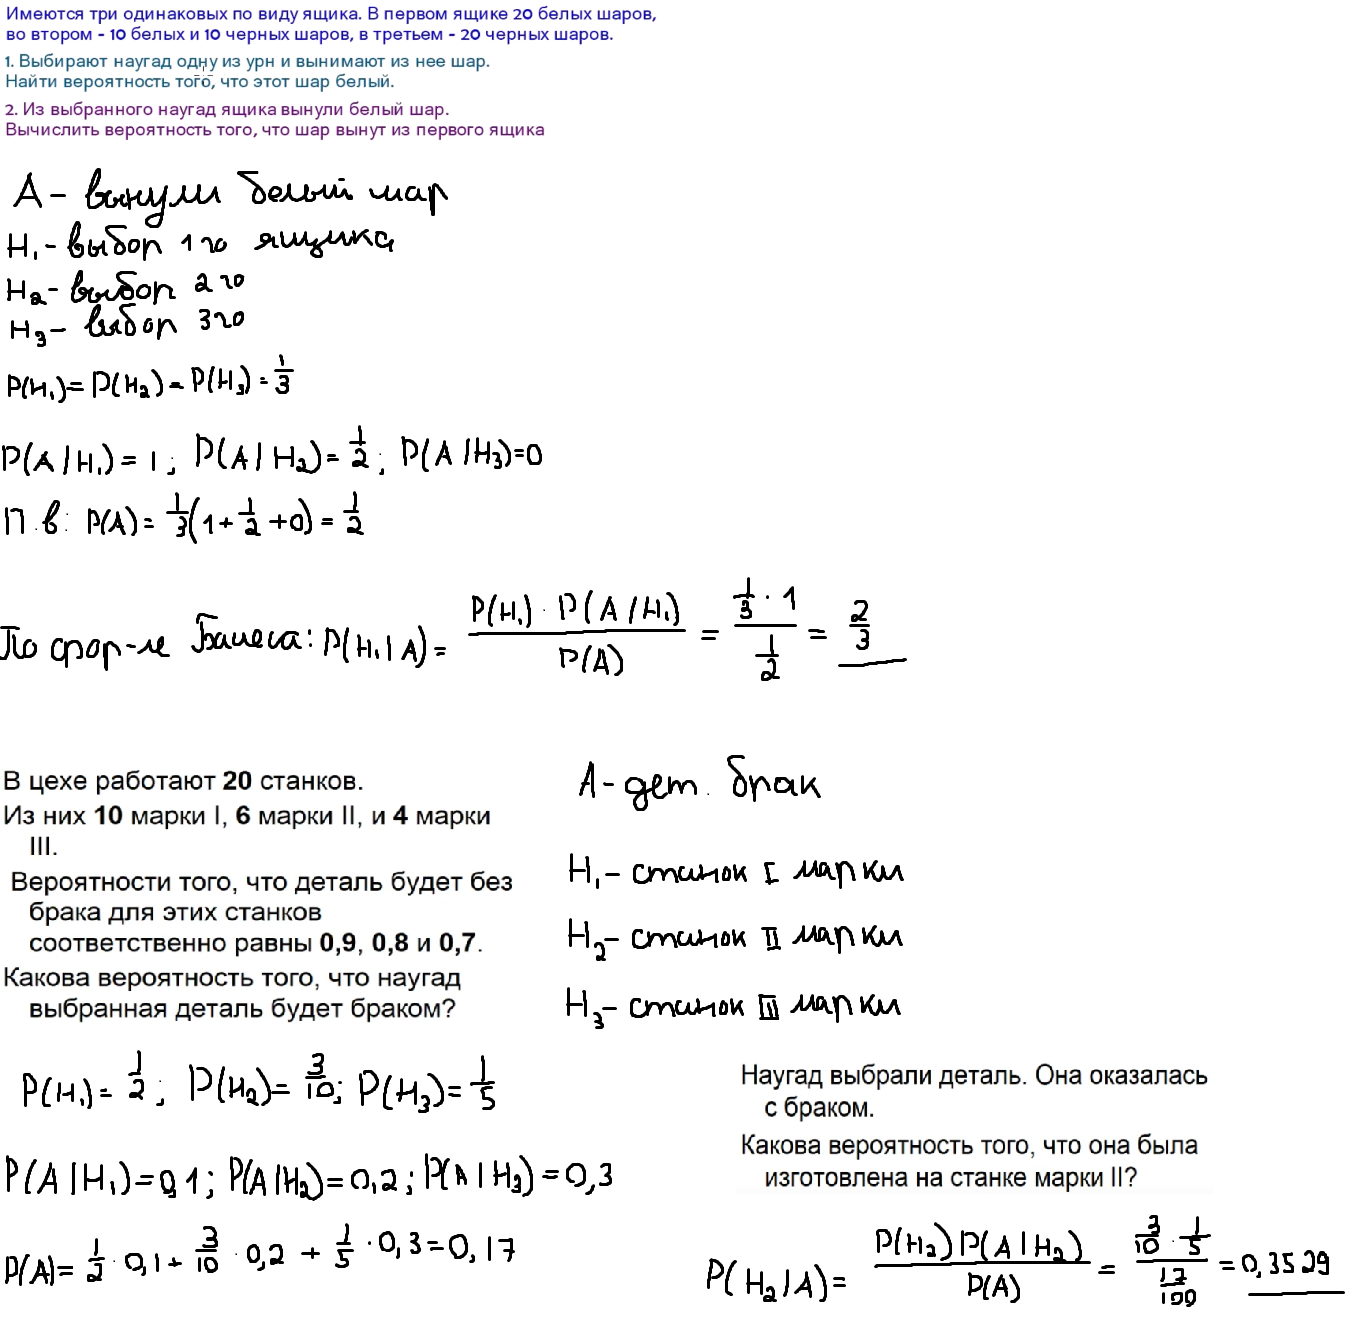 Имеются три одинаковых по виду ящика. В первом ящике 20 белых шаров,
во втором - 10 белых и 10 черных шаров, в третьем - 20 черных шаров.
1. Выбирают наугад одну из урн и вынимают из нее шар.
Найти вероятность того, что этот шар белый.
2. Из выбранного наугад ящика вынули белый шар.
Вычислить вероятность того, что шар вынут из первого ящика
A - вынули белый шар
H₁ - выбор 1го ящика
H₂ - выбор 2го
H₃ - выбор 3го
P(H₁) = P(H₂) = P(H₃) = 1/3
P(A/H₁) = 1; P(A/H₂) = 1/2; P(A/H₃) = 0
П.в: P(A) = 1/3(1 + 1/2 + 0) = 1/2
По фор-ле Байеса: P(H₁|A) = P(H₁) · P(A/H₁) / P(A) = 1/3 · 1 / 1/2 = 2/3
В цехе работают 20 станков.
Из них 10 марки I, 6 марки II, и 4 марки
III.
Вероятности того, что деталь будет без
брака для этих станков
соответственно равны 0,9, 0,8 и 0,7.
Какова вероятность того, что наугад
выбранная деталь будет браком?
A - дет. брак
H₁ - станок I марки
H₂ - станок II марки
H₃ - станок III марки
P(H₁) = 1/2; P(H₂) = 3/10; P(H₃) = 1/5
P(A|H₁) = 0,1; P(A|H₂) = 0,2; P(A|H₃) = 0,3
P(A) = 1/2 · 0,1 + 3/10 · 0,2 + 1/5 · 0,3 = 0,17
Наугад выбрали деталь. Она оказалась
с браком.
Какова вероятность того, что она была
изготовлена на станке марки II?
P(H₂|A) = P(H₂)P(A|H₂) / P(A) = 3/10 · 1/5 / 17/100 = 0,3529